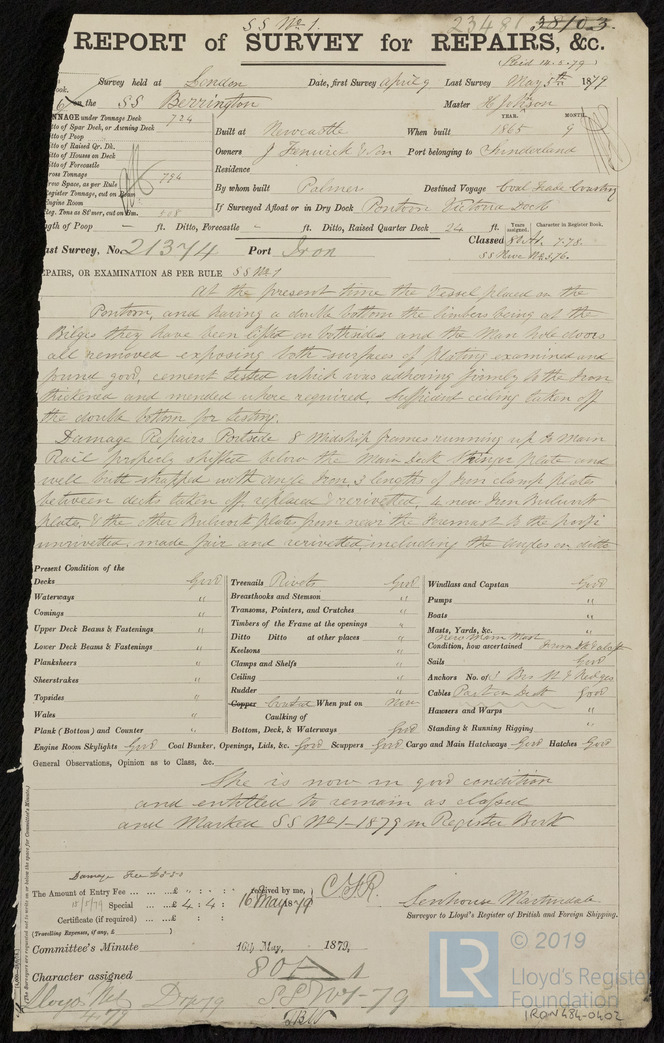 SS No 1.
23481 3810.3.
REPORT of SURVEY for REPAIRS, &c.
(Recd 14.5.79)
Survey held at London Date, first Survey April 9 Last Survey May 5th 1879
on the SS Berrington Master H Johnson
NNAGE under Tonnage Deck 724
tto of Spar Deck, or Awning Deck
tto of Poop
tto of Raised Qr. Dk.
tto of Houses on Deck
tto of Forecastle
ross Tonnage 794
rew Space, as per Rule
egister Tonnage, cut on Beam
ngine Room
eg. Tons as St'mer, cut on Bm.
Built at Newcastle When built YEAR. 1865 MONTH. 9
Owners J Fenwick & Son Port belonging to Sunderland
Residence
By whom built Palmer Destined Voyage Coal Trade Country
If Surveyed Afloat or in Dry Dock Pontoon Victoria Dock
gth of Poop - ft. Ditto, Forecastle - ft. Ditto, Raised Quarter Deck 24 ft. Years assigned. Character in Register Book.
ast Survey, No. 21374 Port Iron Classed 80A1. 7.78.
EPAIRS, OR EXAMINATION AS PER RULE SS No 1
At the present time the Vessel placed on the
Pontoon, and having a double bottom the limbers being at the
Bilges they have been lifted on both sides, and the Man hole doors
all removed exposing both surfaces of plating examined and
found good, cement tested which was adhering firmly to the Iron
thickened and mended where required. Sufficient ceiling taken off
the double bottom for testing.
Damage Repairs Portside 8 Midship frames running up to Main
Rail properly shifted below the Main Deck Stringer plate and
well butt strapped with angle Iron, 3 lengths of Iron clamp plates
between decks taken off, replaced & rerivetted, 4 new Iron Bulwark
plates, & the other Bulwark plates from near the Foremast to the poop
unrivetted, made fair and rerivetted, including the angles on ditto
Present Condition of the
Decks Good Treenails Rivets Good Windlass and Capstan Good
Waterways " Breasthooks and Stemson " Pumps "
Comings " Transoms, Pointers, and Crutches " Boats "
Upper Deck Beams & Fastenings " Timbers of the Frame at the openings " Masts, Yards, &c. "
new Main Mast
Lower Deck Beams & Fastenings " Ditto Ditto at other places " Condition, how ascertained From Dk & aloft
Planksheers " Keelsons " Sails Good
Sheerstrakes " Clamps and Shelfs " Anchors No. of
Topsides " Ceiling " Cables Part on Deck Good
Wales " Rudder " Hawsers and Warps "
Copper Coated When put on Now
Plank (Bottom) and Counter " Caulking of Bottom, Deck, & Waterways Good Standing & Running Rigging "
Engine Room Skylights Good Coal Bunker, Openings, Lids, &c. Good Scuppers Good Cargo and Main Hatchways Good Hatches Good
General Observations, Opinion as to Class, &c.
She is now in good condition
and entitled to remain as classed
and Marked SS No 1-1879 in Register Book
The Amount of Entry Fee ... ... ...£ " : " : received by me,
15/5/79 Special ... ...£ 4 : 4 : 16 May 1879
Certificate (if required) ... ...£ : :
(Travelling Expenses, if any, £ )
Senhouse Martindale
Surveyor to Lloyd's Register of British and Foreign Shipping.
Committee's Minute 16th May, 1879,
Character assigned 80 A 1
SS No 1-79
LR
© 2019
Lloyd's Register
Foundation
IRON484-0402